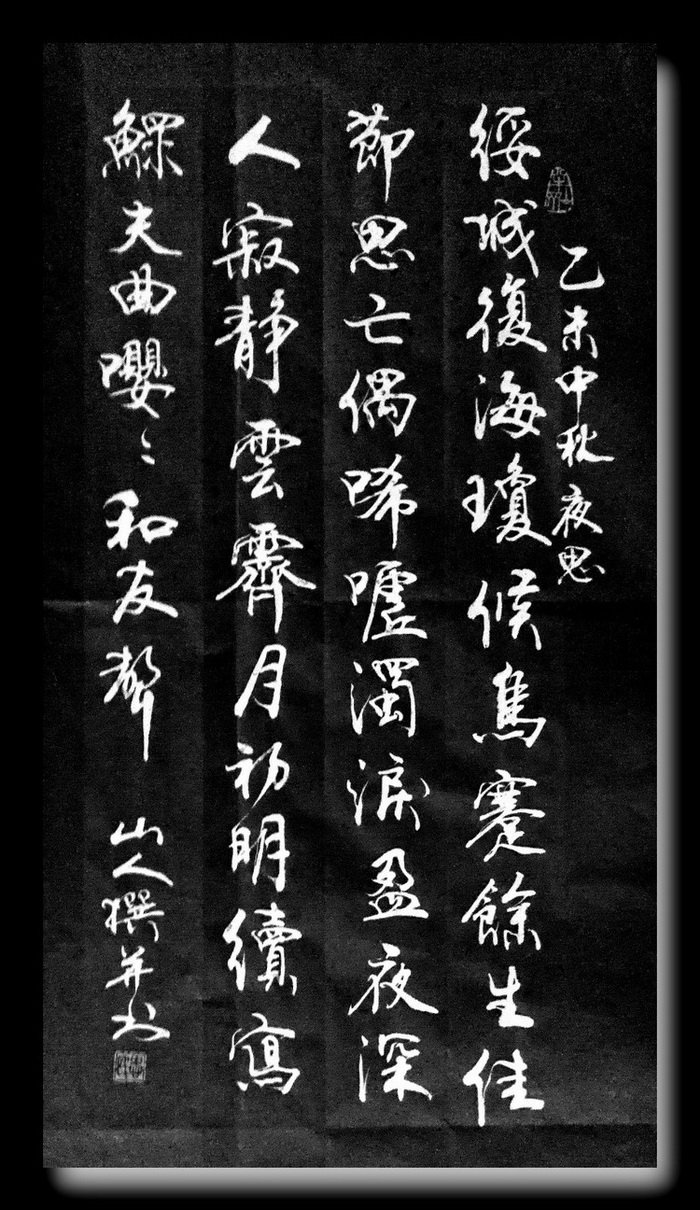 乙未中秋夜思
綏城復海瓊候鳥蹇餘生佳
節思亡偶唏噓濁淚盈夜深
人寂靜雲霽月初明續寫
鰥夫曲嚶〻和友聲 山人撰并书